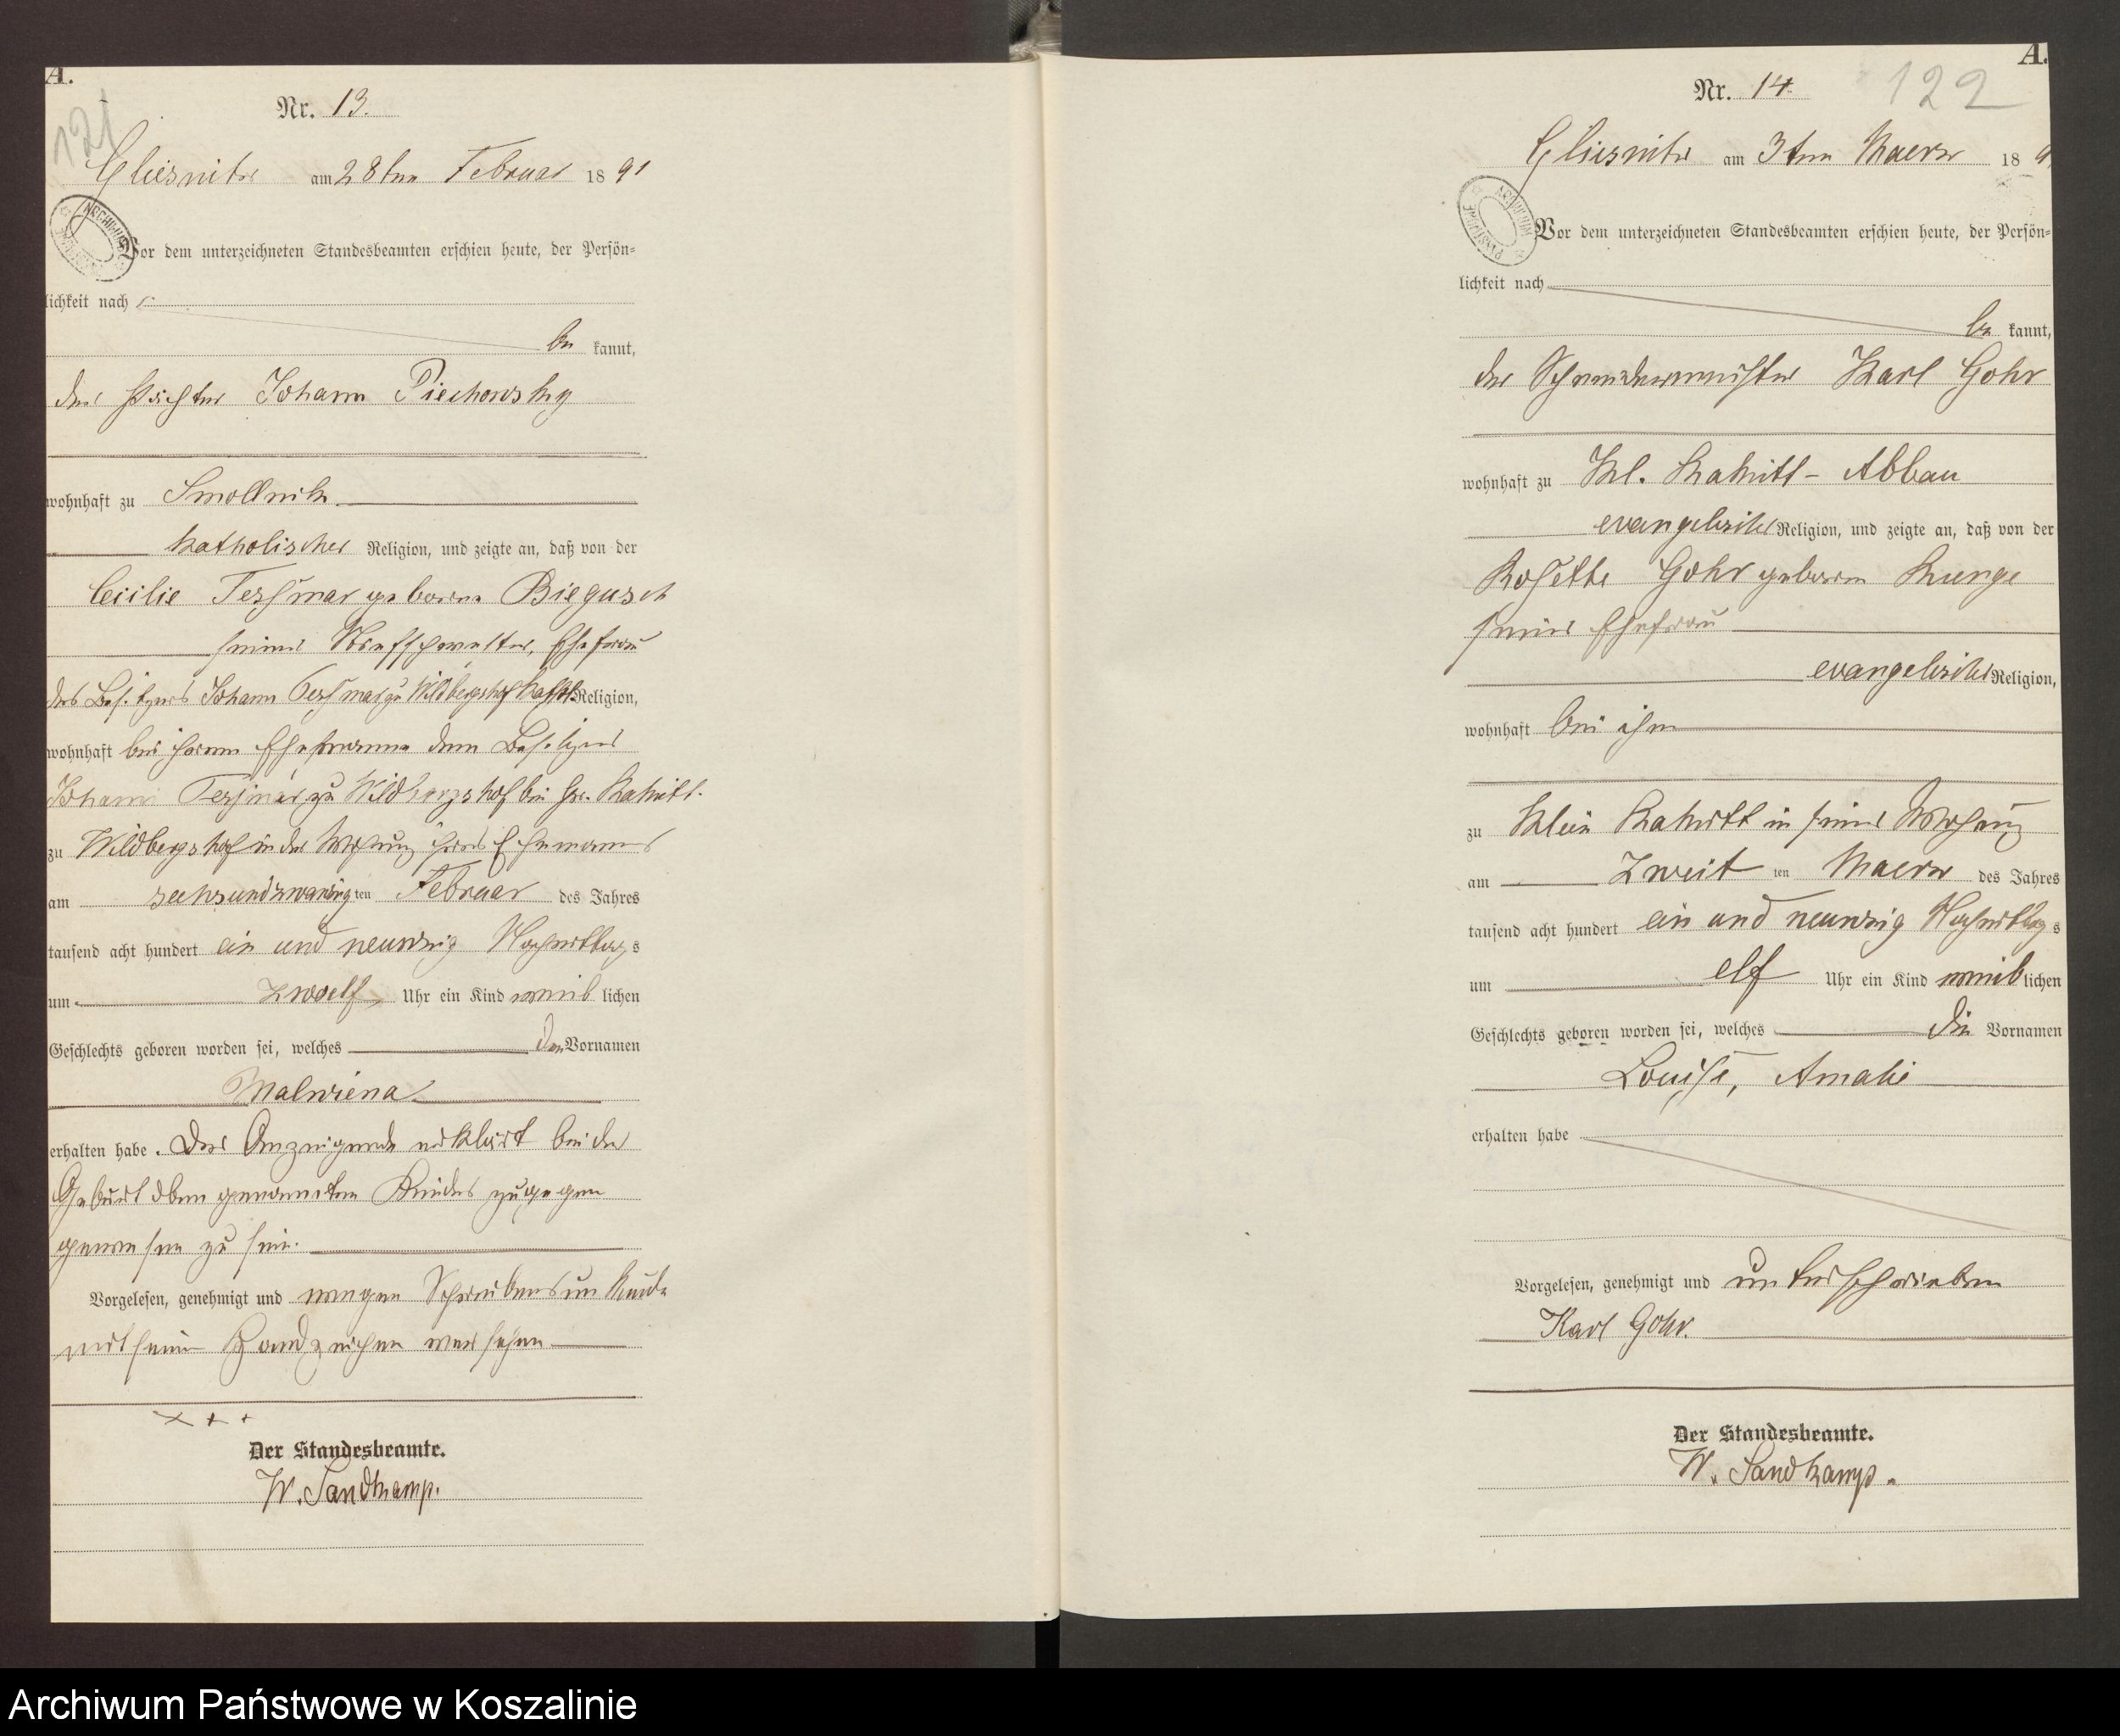 A.
121
Nr. 13.
Gliesnitz am 28ten Februar 1891
Vor dem unterzeichneten Standesbeamten erschien heute, der Persön=
lichkeit nach
be kannt,
der Pächter Johann Piechowsky
wohnhaft zu Smollnik.
katholischer Religion, und zeigte an, daß von der
Cecilie Tessmar geborene Biegusch
seiner Ehefrau
des Besitzers Johann Tessmar zu Wildbergshof Religion,
wohnhaft bei ihrem Ehemanne dem Besitzer
Johann Tessmar zu Wildbergshof bei Gr. Rakitt.
zu Wildbergshof in der Wohnung ihres Ehemannes
am sechsundzwanzig ten Februar des Jahres
tausend acht hundert ein und neunzig Nachmittags
um Zwoelf Uhr ein Kind weib lichen
Geschlechts geboren worden sei, welches den Vornamen
Malwiena
erhalten habe. Der Anzeigende erklärt bei der
Geburt oben genannten Kindes zugegen
gewesen zu sein.
Vorgelesen, genehmigt und wegen Schreibensunkunde
mit seinem Handzeichen versehen
+ + +
Der Standesbeamte.
W. Sandkamp.
A.
122
Nr. 14.
Gliesnitz am 3ten Maerz 189
Vor dem unterzeichneten Standesbeamten erschien heute, der Persön=
lichkeit nach
be kannt,
der Schneidermeister Karl Gohr
wohnhaft zu Kl. Rakitt - Abbau
evangelischer Religion, und zeigte an, daß von der
Rosette Gohr geboren Runge
seiner Ehefrau
evangelischer Religion,
wohnhaft bei ihm
zu Klein Rakitt in seiner Wohnung
am Zweit ten Maerz des Jahres
tausend acht hundert ein und neunzig Nachmittags
um elf Uhr ein Kind weib lichen
Geschlechts geboren worden sei, welches die Vornamen
Louise, Amalie
erhalten habe
Vorgelesen, genehmigt und unterschrieben
Karl Gohr.
Der Standesbeamte.
W. Sandkamp.
Archiwum Państwowe w Koszalinie